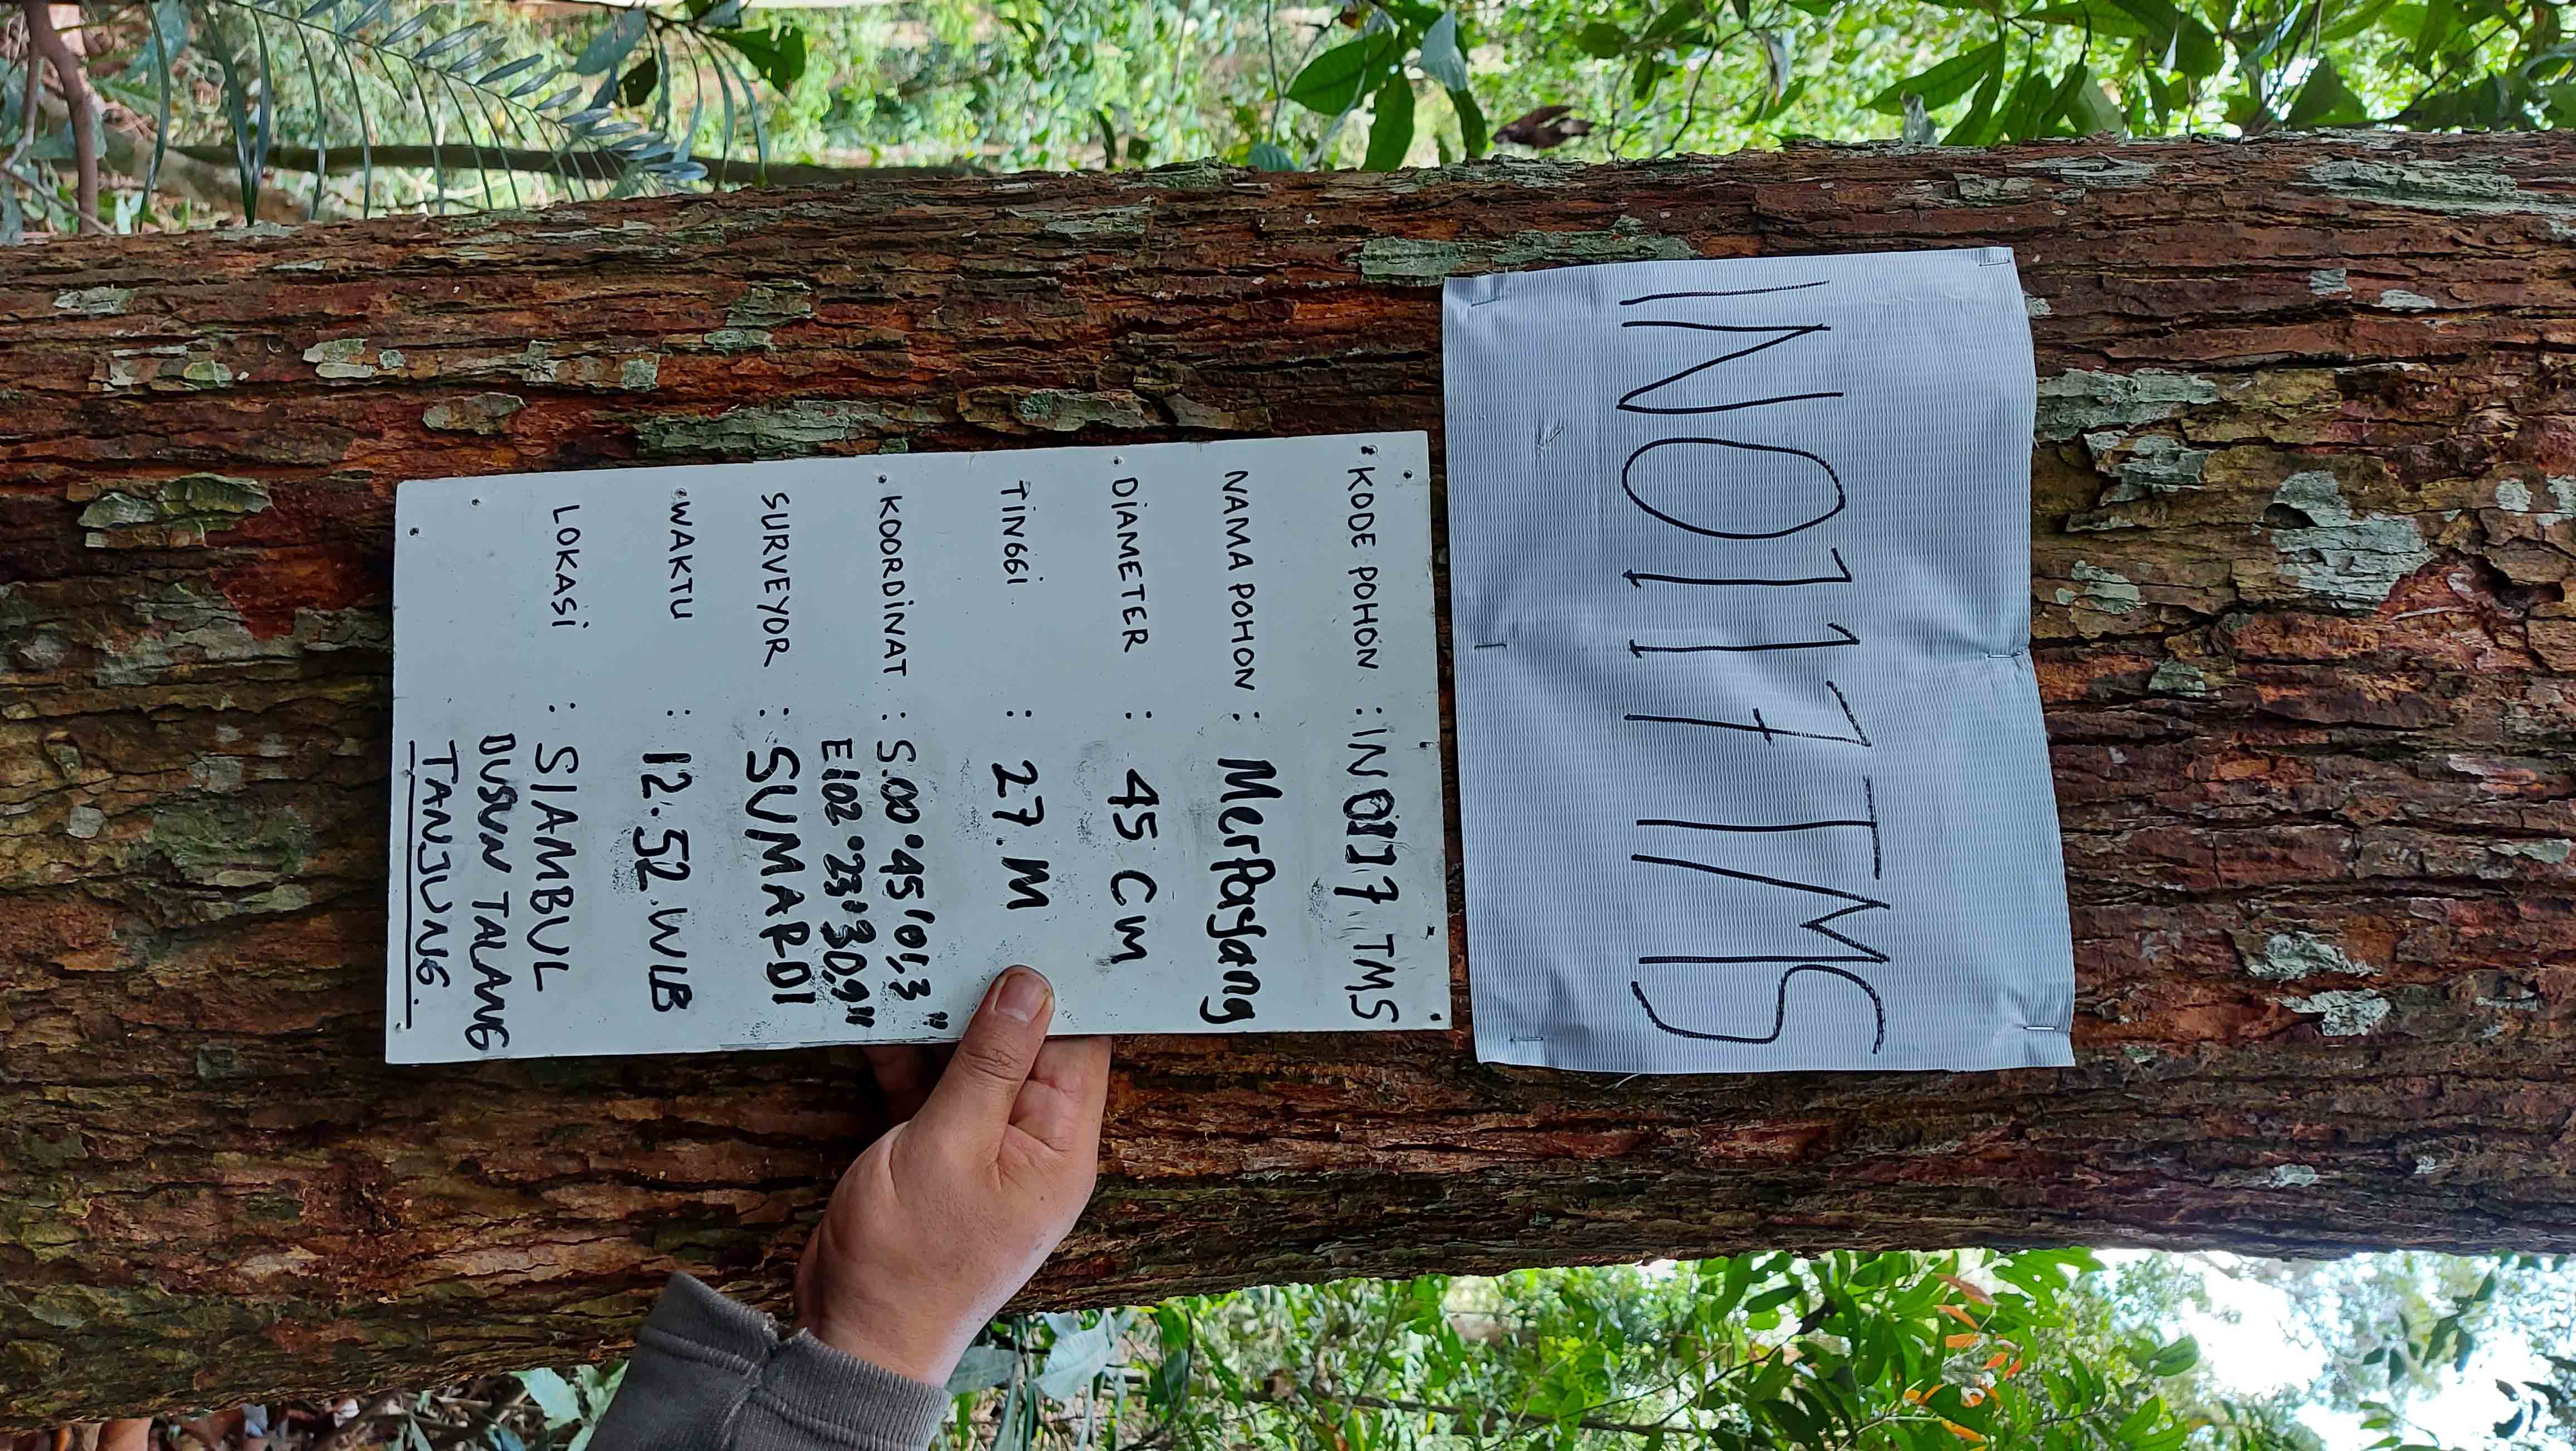 IN0117 TMS
KODE POHON : IN 0117 TMS
NAMA POHON : Merpayang
DIAMETER : 45 CM
TINGGI : 27.M
KOORDINAT : S.00°45'01,3"
E102°23'30,9"
SURVEYOR : SUMARDI
WAKTU : 12.52 WIB
LOKASI : SIAMBUL
DUSUN TALANG
TANJUNG.